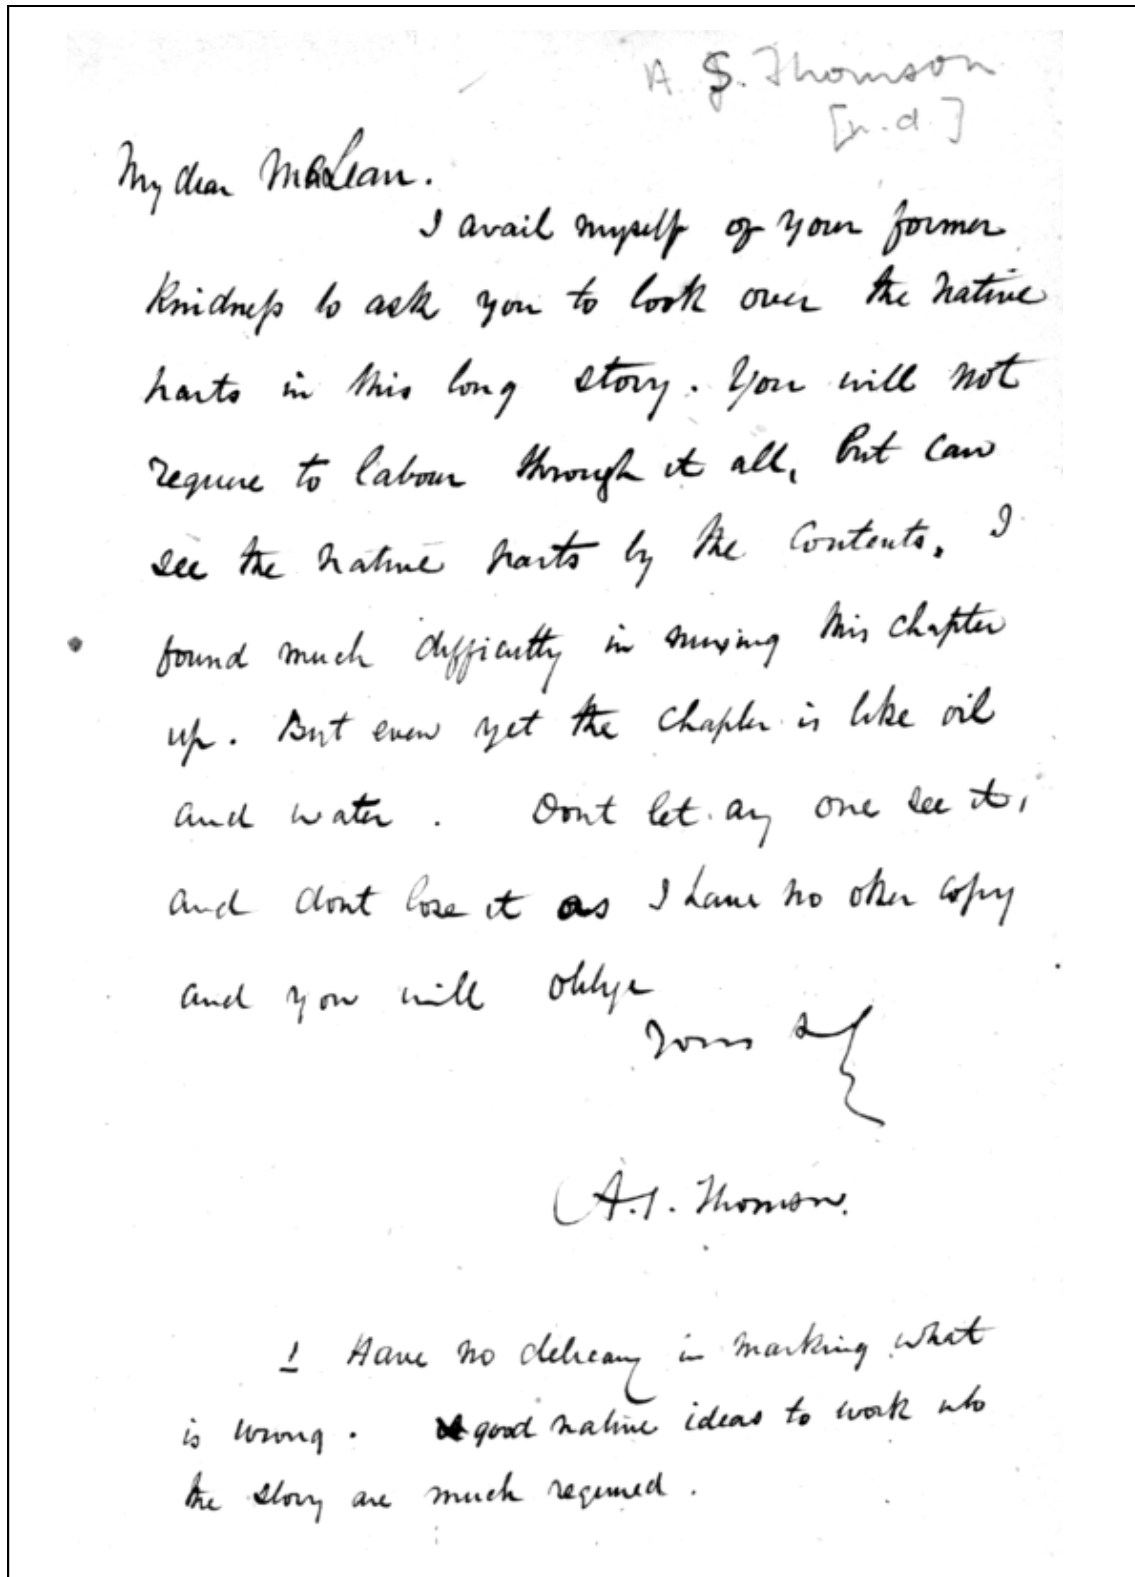 A S. Thomson
[n.d.]
My dear McLean.
I avail myself of your former
Kindness to ask you to look over the native
parts in this long story. You will not
require to labour through it all, but can
see the native parts by the Contents. I
found much difficulty in mixing this chapter
up. But even yet the chapter is like oil
and water. Dont let any one see it,
and dont lose it as I have no other copy
and you will oblige
Yours
A.S. Thomson.
1 Have no delicacy in marking what
is wrong. good native ideas to work into
the story are much required.